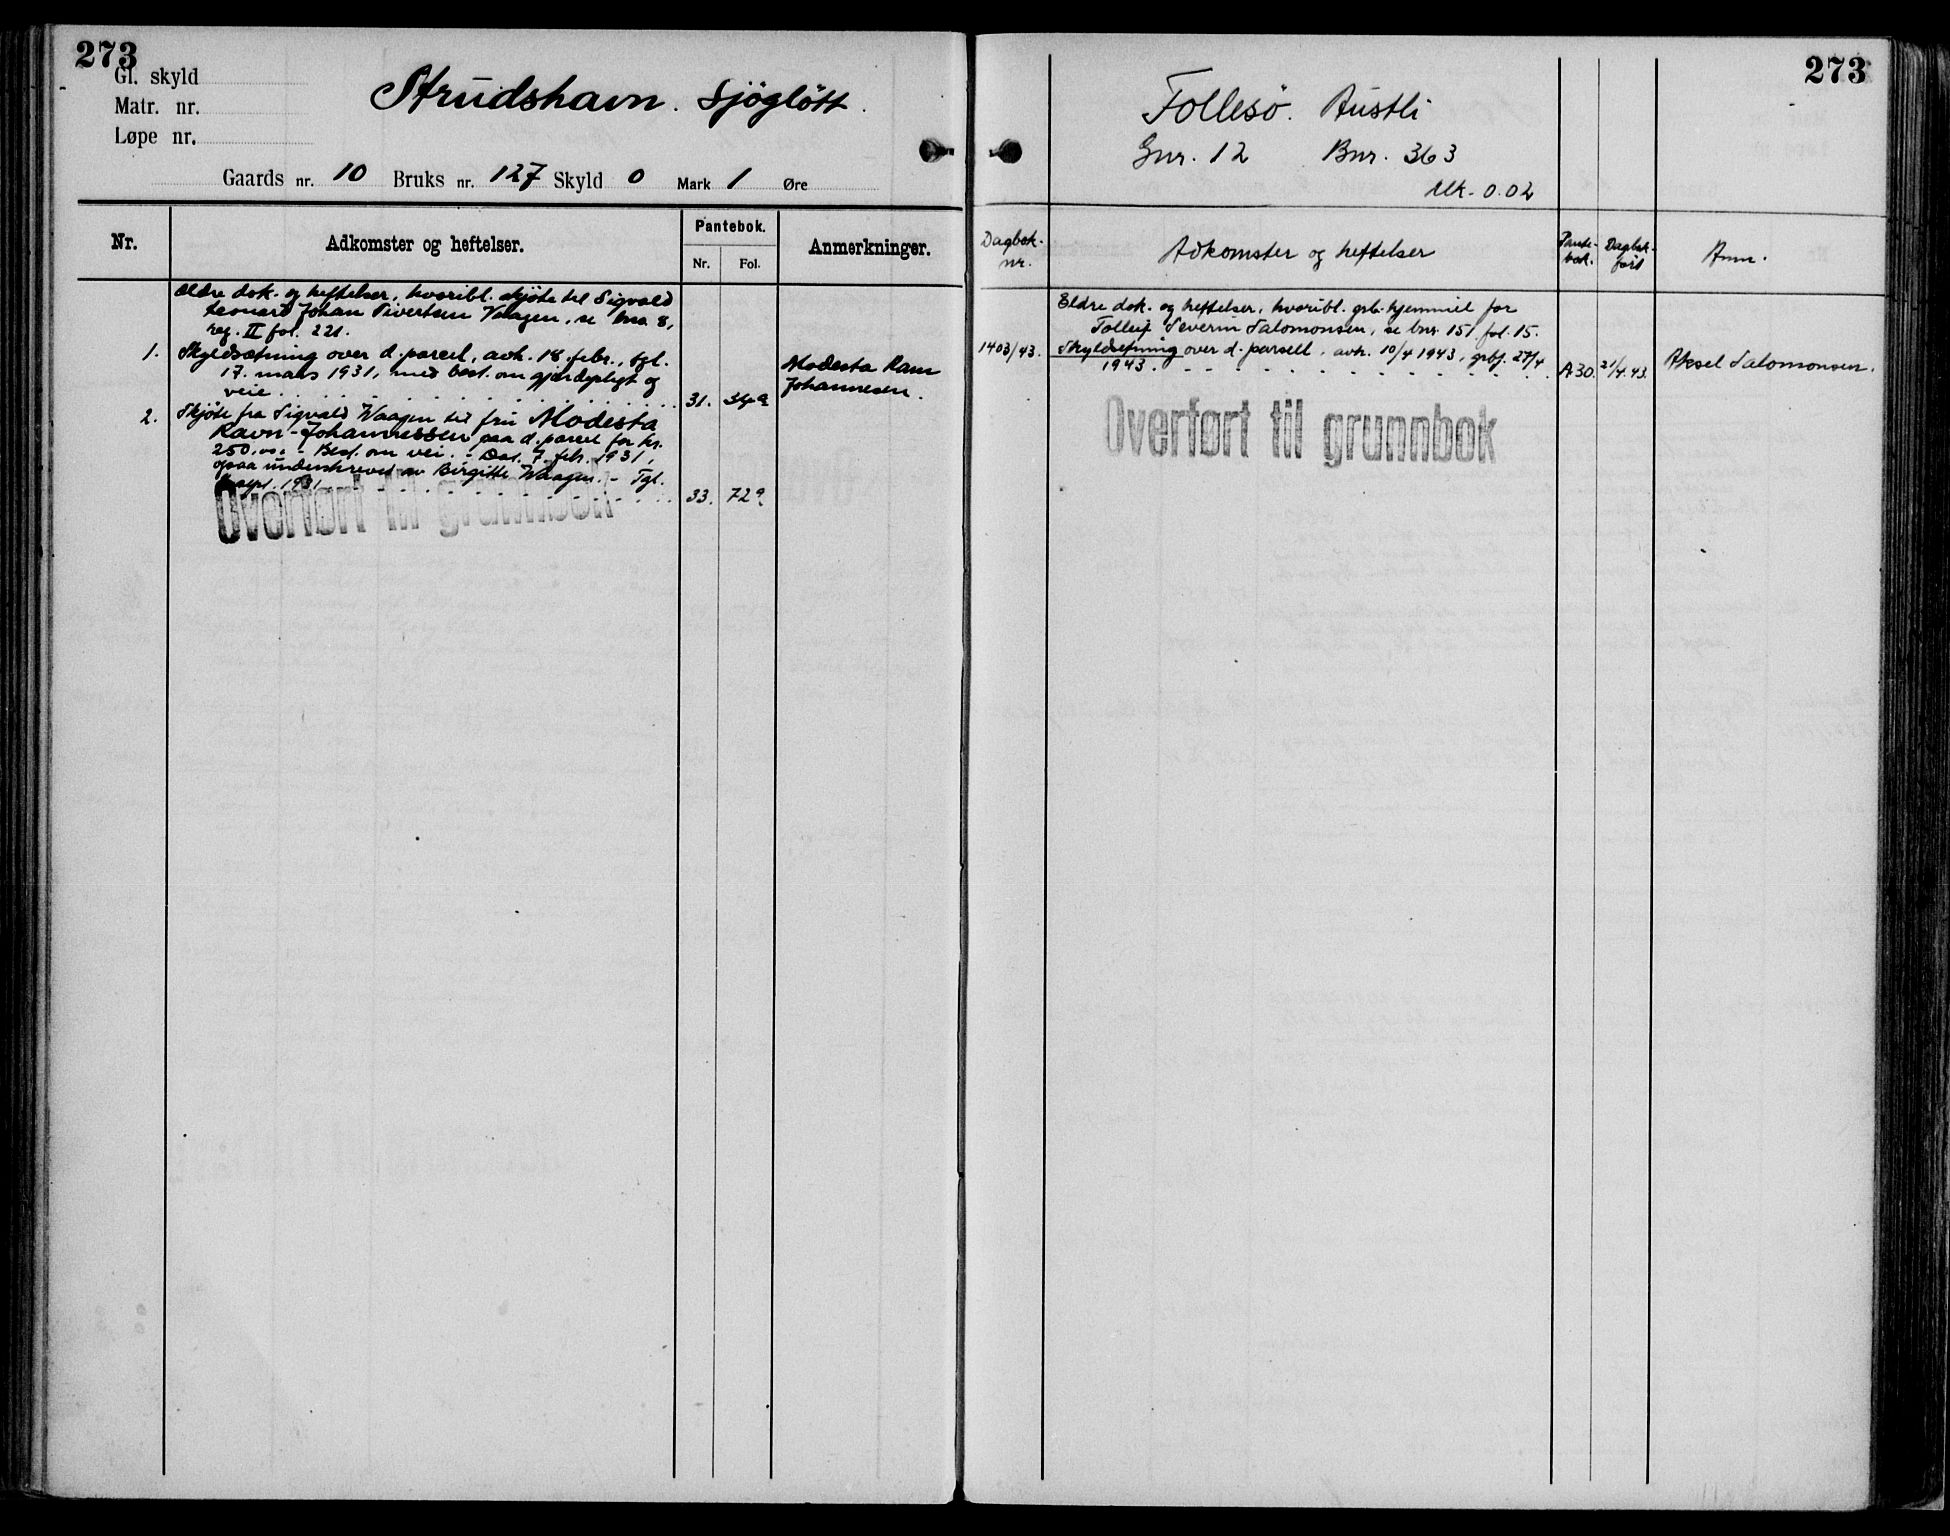 273
Gl. skyld
Matr. nr.
Løpe nr.
Strudshavn. Sjöglött.
Gaards nr. 10 Bruks nr. 127 Skyld 0 Mark 1 Øre
Nr.
Adkomster og heftelser.
Pantebok.
Nr. Fol.
Anmerkninger.
Eldre dok. og heftelser, hvoribl. skjöte til Sigvald
Leonard Johan Sivertsen Vaagen, se bno 8,
reg. II fol. 221.
1. Skyldsætning over d. parcel, avh. 18. febr., tgl.
17. mars 1931, med best. om gjerdepligt og
veie. 31. 342
Modesta Ravn
Johannesen.
2. Skjöte fra Sigvald Waagen til fru Modesta
Ravn-Johannessen paa d. parcel for kr.
250.00. - Best. om vei. - Dat. 7. feb. 1931,
ogsaa underskrevet av Birgitte Waagen. - Tgl.
sept. 1931 33. 729
Overført til grunnbok
273
Follesö. Austli
Gnr. 12 Bnr. 363
Mk. 0.02
Dagbok-
nr.
Adkomster og heftelser
Pante-
bok.
Dagbok-
ført
Anm.
Eldre dok. og heftelser, hvoribl. grb. hjemmel for
Tolleif Severin Salomonsen, se bnr. 151 fol. 15.
1403/43. Skyldsetning over d. parsell, avh. 10/4 1943, grbf. 27/4
1943. A 30. 21/4.43. Aksel Salomonsen.
Overført til grunnbok